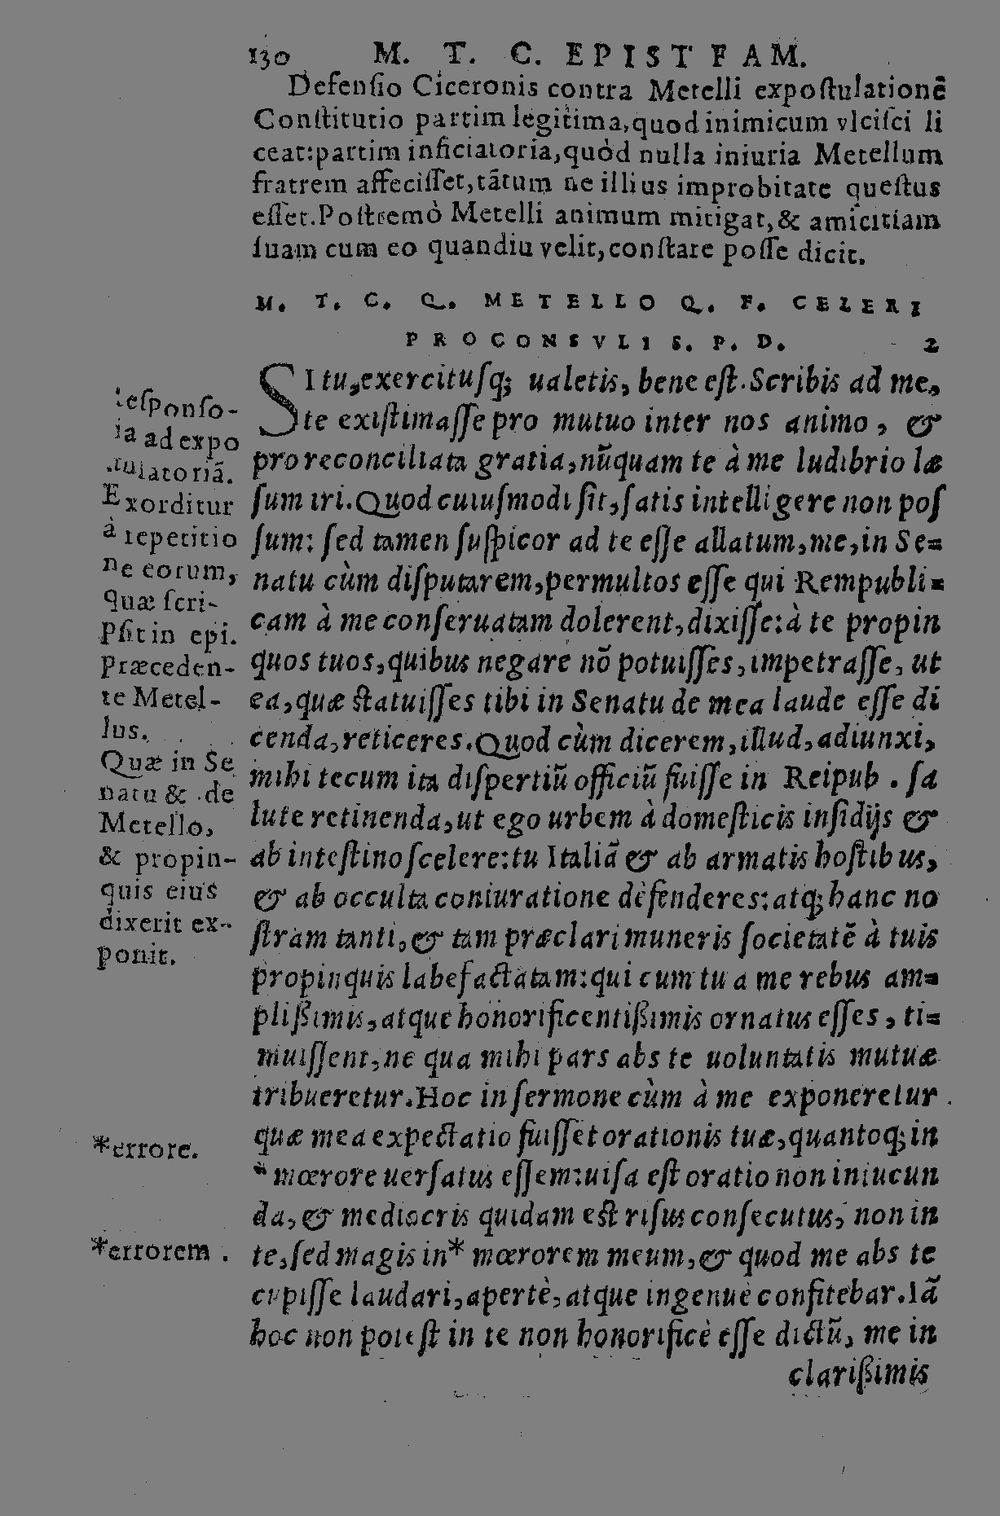 130 M. T. C. EPIST FAM.
Defensio Ciceronis contra Metelli expostulationē
Constitutio partim legitima,quod inimicum vlcisci li
ceat:partim inficiatoria,quòd nulla iniuria Metellum
fratrem affecisset,tātum de illius improbitate questus
esset.Postremò Metelli animum mitigat,& amicitiam
suam cum eo quandiu velit,constare posse dicit.
M. T. C. Q. METELLO Q. F. CELERI
PROCONSVLI S. P. D. 2
SI tu,exercitusq; ualetis, bene est.Scribis ad me,
te existimasse pro mutuo inter nos animo, &
pro reconciliata gratia,nūquam te à me ludibrio læ
sum iri.Quod cuiusmodi sit,satis intelligere non pos
sum: sed tamen suspicor ad te esse allatum,me,in Se=
natu cùm disputarem,permultos esse qui Rempubli=
cam à me conseruatam dolerent,dixisse:à te propin
quos tuos,quibus negare nō potuisses,impetrasse, ut
ea,quæ statuisses tibi in Senatu de mea laude esse di
cenda,reticeres.Quod cùm dicerem,illud,adiunxi,
mihi tecum ita dispertiū officiū fuisse in Reipub. sa
lute retinenda,ut ego urbem à domesticis insidijs &
ab intestino scelere:tu Italiā & ab armatis hostibus,
& ab occulta coniuratione defenderes:atq; hanc no
stram tanti,& tam præclari muneris societatē à tuis
propinquis labefactatam:qui cum tu a me rebus am=
plißimis,atque honorificentißimis ornatus esses, ti=
muissent,ne qua mihi pars abs te uoluntatis mutuæ
tribueretur.Hoc in sermone cùm à me exponeretur
quæ mea expectatio fuisset orationis tuæ,quantoq; in
* mœrore uersatus essem:uisa est oratio non iniucun
da,& mediocris quidam est risus consecutus, non in
te,sed magis in* mœrorem meum,& quod me abs te
cupisse laudari,apertè,atque ingenuè confitebar.Iā
hoc non potest in te non honorificè esse dictū, me in
clarißimis
Responso-
ria ad expo
stulatoriā.
Exorditur
à repetitio
ne eorum,
quæ scri-
psit in epi.
præceden-
te Metel-
lus.
Quæ in Se
natu & de
Metello,
& propin-
quis eius
dixerit ex-
ponit.
*errore.
*errorem.